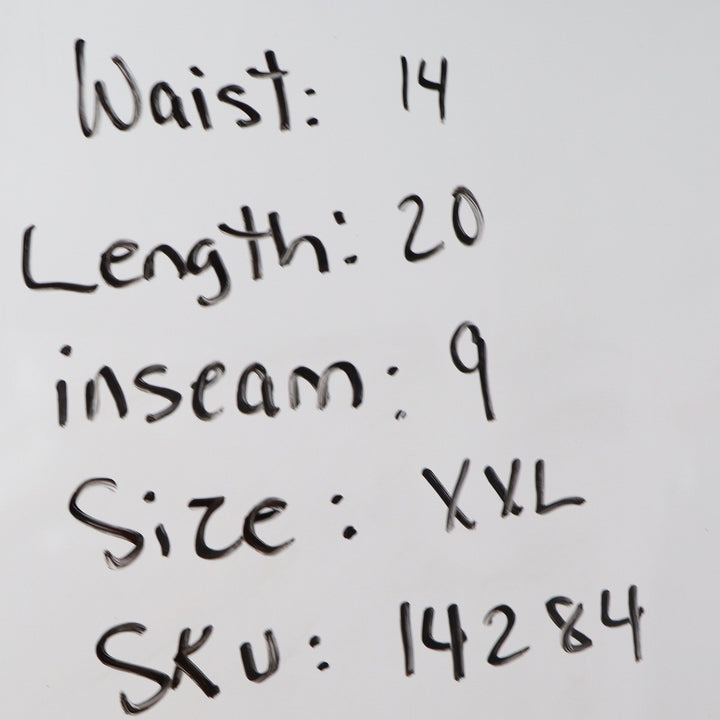 Waist: 14
Length: 20
inseam: 9
Size: XXL
SKU: 14284